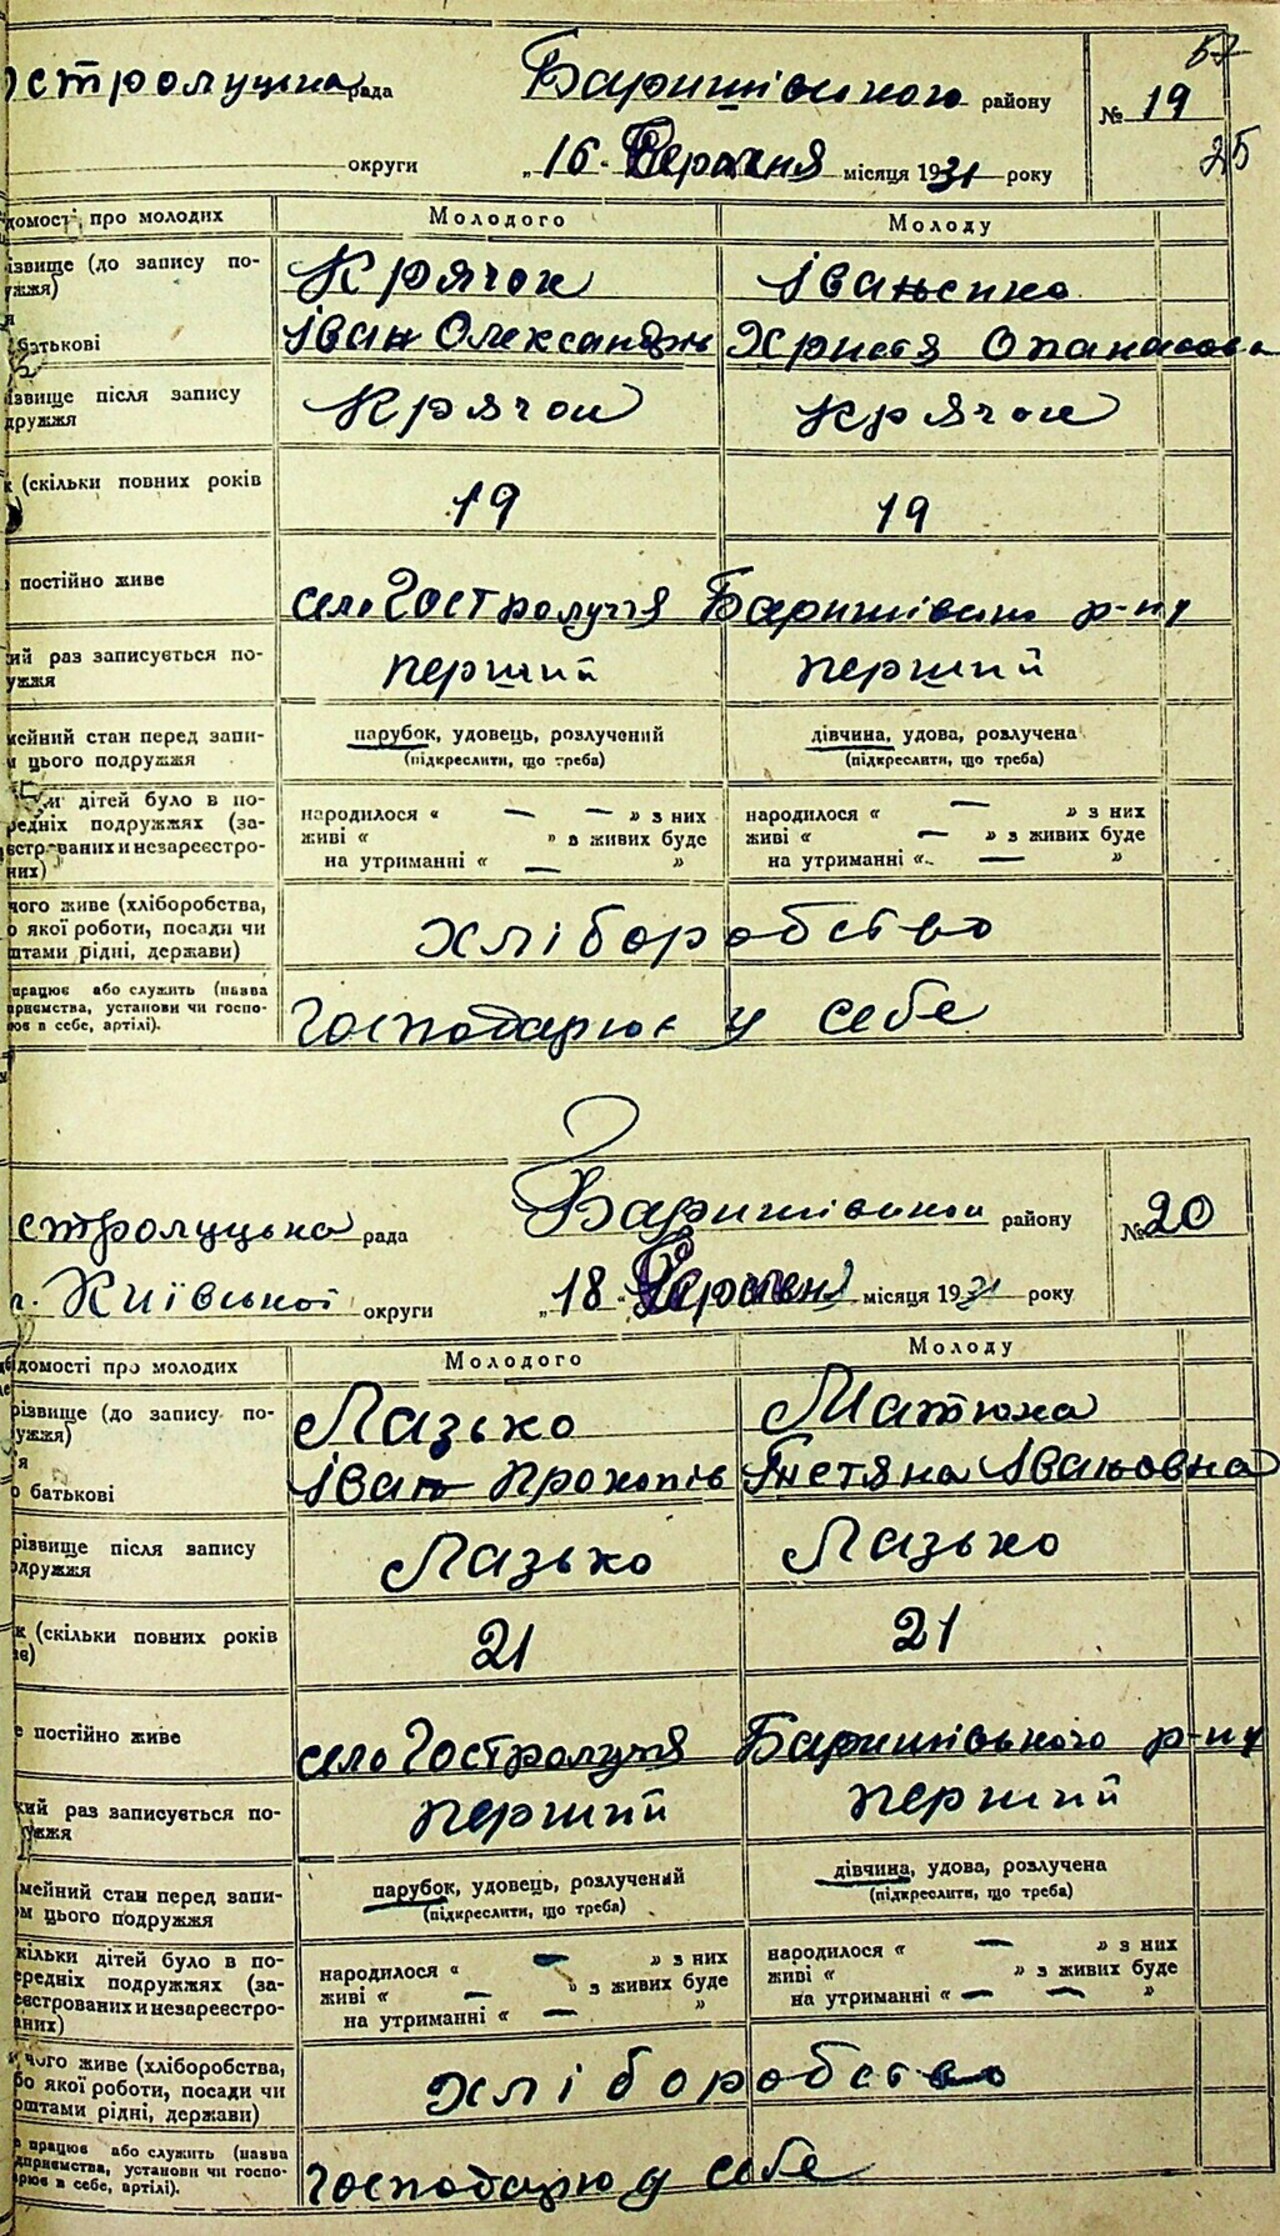 57
остролуцька рада Баришівського району № 19
округи „16" Березня місяця 1931 року
25
домості про молодих Молодого Молоду
ізвище (до запису по- Крячок Іваненко
ужжя)
я
батькові Іван Олександрів Христя Опанасовна
ізвище після запису Крячок Крячок
дружжя
к (скільки повних років 19 19
постійно живе село Гостролуччя Баришівськ р-ну
ий раз записується по- перший перший
ужжя
мейний стан перед запи- парубок, удовець, розлучений дівчина, удова, розлучена
м цього подружжя (підкреслити, що треба) (підкреслити, що треба)
дітей було в по- народилося « — — » з них народилося « — » з них
редніх подружжях (за- живі « » з живих буде живі « — » з живих буде
єстрованих и незареєстро- на утриманні « — » на утриманні « — »
них)
чого живе (хліборобства, хліборобство
о якої роботи, посади чи
штами рідні, держави)
працює або служить (назва Господарює у себе
приємства, установи чи госпо-
рює в себе, артілі).
стролуцька рада Баришівської району № 20
Київської округи „18" місяця 1931 року
ідомості про молодих Молодого Молоду
різвище (до запису по- Лазько Матюха
ужжя)
'я
о батькові Іван Прокопів Тетяна Івановна
різвище після запису Лазько Лазько
одружжя
к (скільки повних років 21 21
є)
е постійно живе село Гостролуччя Баришівського р-ну
кий раз записується по- перший перший
ужжя
мейний стан перед запи- парубок, удовець, розлучений дівчина, удова, розлучена
м цього подружжя (підкреслити, що треба) (підкреслити, що треба)
кільки дітей було в по- народилося « — » з них народилося « — » з них
ередніх подружжях (за- живі « — » з живих буде живі « » з живих буде
еєстрованих и незареєстро- на утриманні « — » на утриманні « — — »
аних)
чого живе (хліборобства, хліборобство
бо якої роботи, посади чи
оштами рідні, держави)
е працює або служить (назва Господарю у себе
дприємства, установи чи госпо-
арює в себе, артілі).